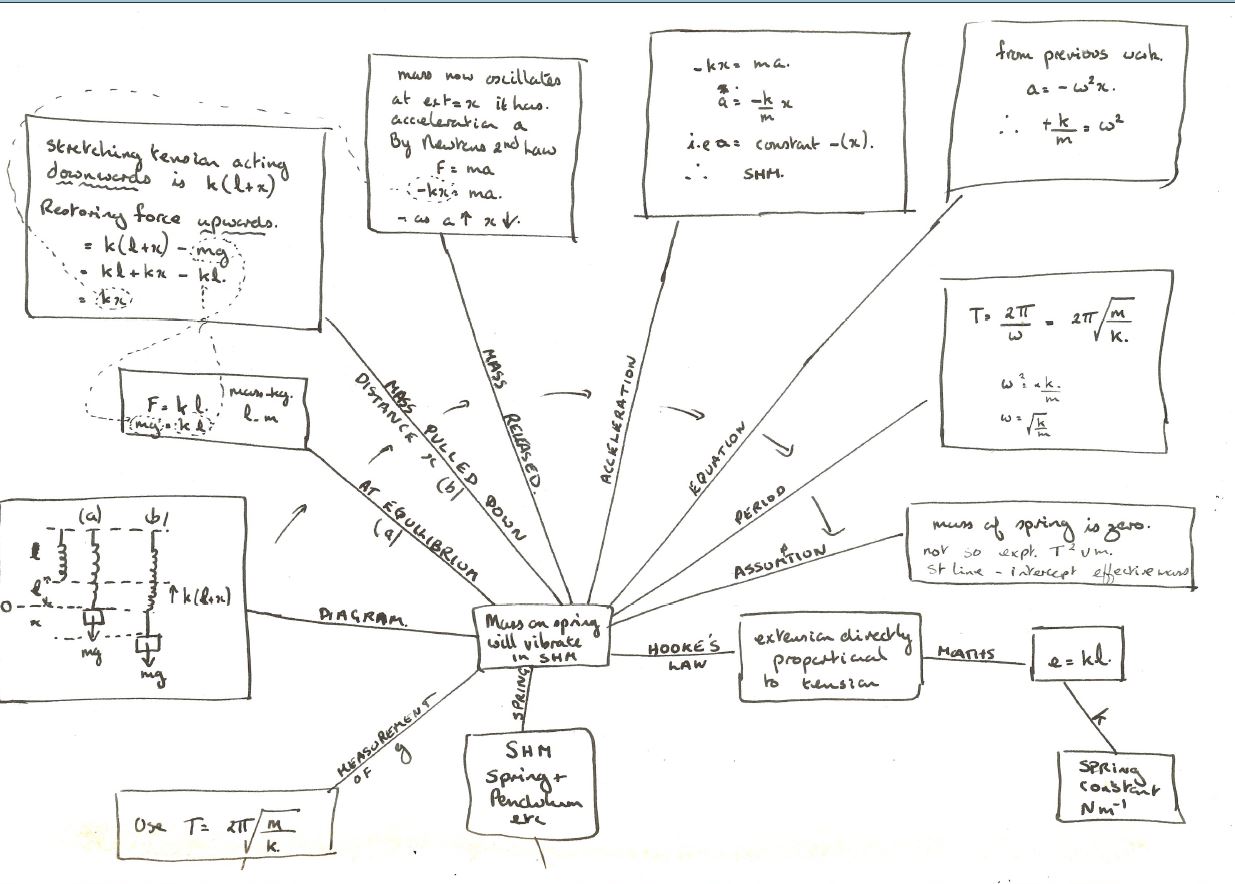 stretching tension acting
downwards is k(l+x)
Restoring force upwards.
= k(l+x) - mg
= kl + kx - kl.
= kx
mass now oscillates
at ext = x it has.
acceleration a
By Newtons 2nd Law
F = ma
-kx = ma.
- as a ↑ x ↓.
-kx = ma.
a = -k/m x
i.e a = constant -(x).
∴ SHM.
from previous work.
a = - ω²x.
∴ +k/m = ω²
T = 2π/ω = 2π√m/k.
ω² = k/m
ω = √k/m
F = kl.
mg = kl
mass-kg.
l - m
MASS PULLED DOWN
DISTANCE x (b)
MASS RELEASED.
ACCELERATION
EQUATION
PERIOD
ASSUMTION
mass of spring is zero.
not so expt. T² v m.
St line - intercept effective mass
AT EQUILIBRIUM
(a)
(a) (b)
l
x
O
↑ k(l+x)
mg
mg
DIAGRAM.
Mass on spring
will vibrate
in SHM
HOOKE'S
LAW
extension directly
proportional
to tension
MATHS
e = kl.
k
SPRING
constant
Nm⁻¹
SPRING
SHM
Spring +
Pendulum
etc
MEASUREMENT
OF g
Use T = 2π√m/k.